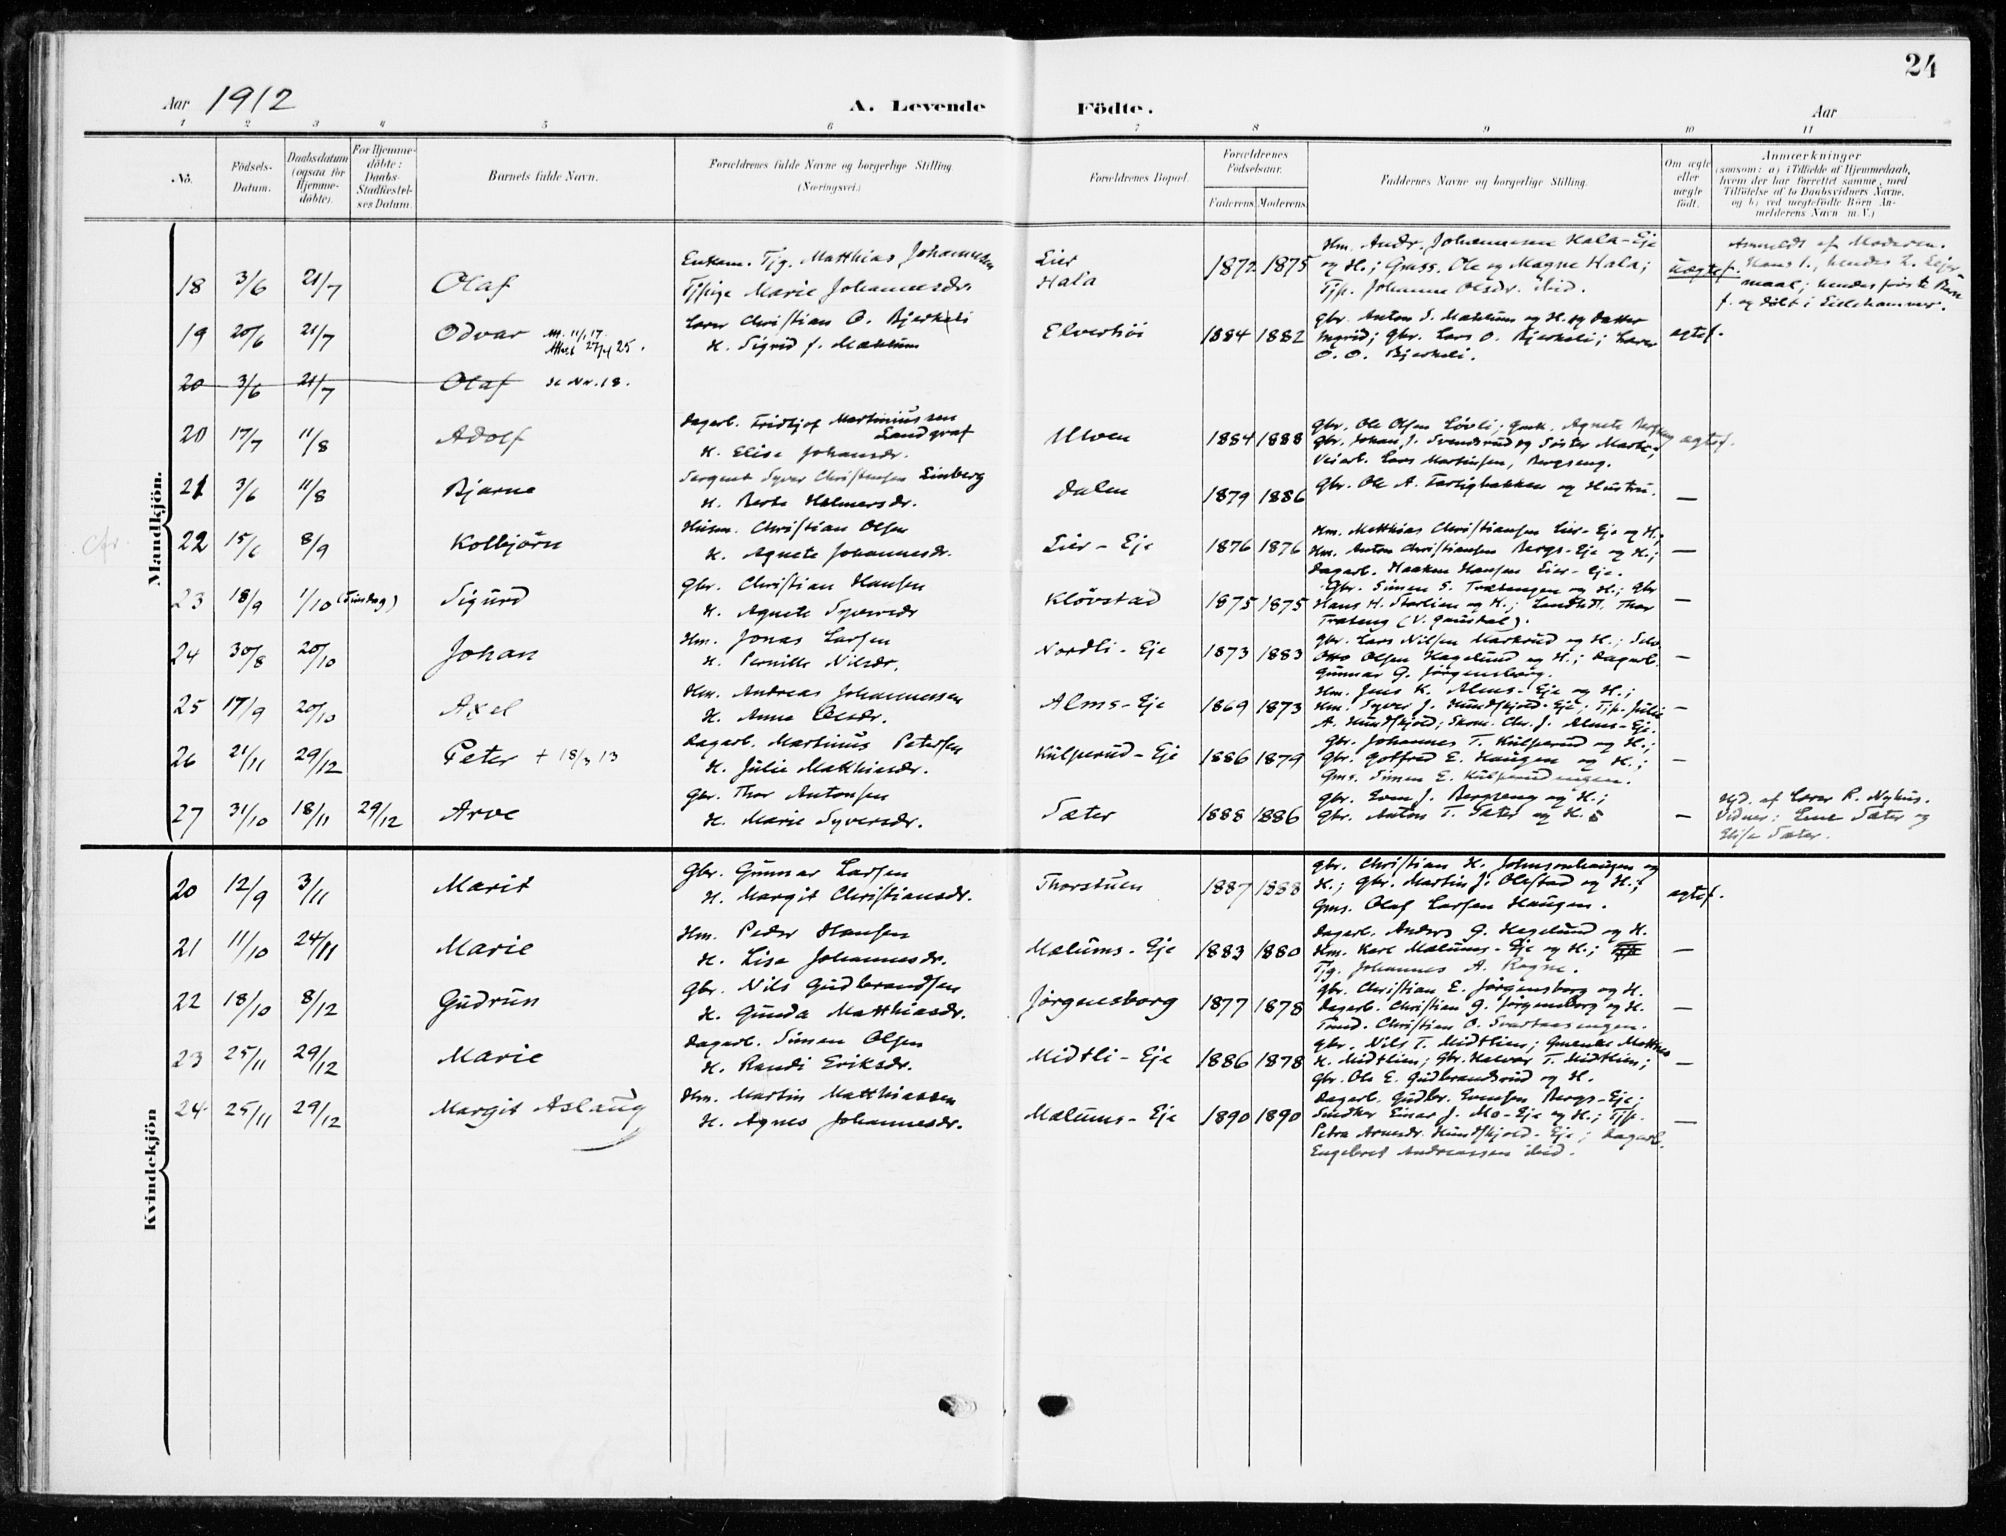 24
Aar 1912 A. Levende Födte. Aar
1 2 3 4 5 6 7 8 9 10 11
No. Födsels-Datum. Daabsdatum (ogsaa for Hjemme-döbte). For Hjemme-döbte: Daabs-Stadfæstel-ses Datum. Barnets fulde Navn. Forældrenes fulde Navne og borgerlige Stilling. (Næringsvei.) Forældrenes Bopæl. Forældrenes Födselsaar. Faderens Moderens Faddernes Navne og borgerlige Stilling. Om ægte eller uægte födt. Anmærkninger (saasom: a) i Tilfælde af Hjemmedaab, hvem der har forrettet samme, med Tilföielse af to Daabsvidners Navne, og b) ved uægtefödte Börn An-melderens Navn m. V.)
Mandkjön.
18 3/6 21/7 Olaf
Enkem. Tjg. Matthias Johannessen
Tjpige Marie Johannesdr.
Lier
Hala
1872 1875
Hm. Andr. Johannesen Hala-Eje
og H.; Grass. Ole og Magne Hala;
Tjp. Johanne Olsdr. ibid.
uægtef.
Anmeldt af Moderen.
Hans 1., hendes 2. Leier-
maal; hendes første Barn
f. og døbt i Lillehammer.
19 20/6 21/7 Odvar Att. 11/1 17.
Attest 27/4 25.
Lærer Christian O. Bjerkeli
H. Sigrid f. Mæhlum
Elverhöi
1884 1882
Gbr. Anton S. Mæhlum og H. og Datter
Ingrid; Gbr. Lars O. Bjerkeli; Lærer
O. O. Bjerkeli.
ægtef.
20 3/6 21/7 Olaf se Nr. 18.
20 17/7 11/8 Adolf
Dagarb. Fridtjof Martiniussen
Landgraf
H. Elise Johansdr.
Ulven
1884 1888
Gbr. Ole Olsen Løvli; Gmk. Agnete Bergseng
Gbr. Johan J. Svendsrud og Søster Marte.
Veiarb. Lars Martinsen, Bergseng.
ægtef.
21 3/6 11/8 Bjarne
Sergent Syver Christensen Linberg
H. Berte Halmersdr.
Dalen
1879 1886
Gbr. Ole A. Færligbakken og Hustru.
—
22 15/6 8/9 Kolbjörn
Husm. Christian Olsen
H. Agnete Johannesdr.
Lier - Eje
1876 1876
Hm. Matthias Christiansen Lier-Eje og H.;
Hm. Anton Christiansen Bergs-Eje og H.;
Dagarb. Haaken Hansen Lier-Eje.
—
23 18/9 1/10 (Tirsdag) Sigurd
Gbr. Christian Hansen
H. Agnete Syversdr
Klövstad
1875 1875
Gbr. Simen S. Trætengen og H.; Gbr
Hans H. Storlien og H.; Landhdl. Thor
Træteng (V. Gausdal).
—
24 30/8 20/10 Johan
Hm. Jonas Larsen
H. Pernille Nilsdr.
Nordli - Eje
1873 1883
Gbr. Lars Nilsen Markrud og H.; Selv.
Otto Olsen Hagelund og H.; Dagarb.
Gunnar G. Jørgensborg.
—
25 17/9 20/10 Axel
Hm. Andreas Johannessen
H. Anne Olsdr.
Alms-Eje
1869 1873
Hm. Jens K. Alms-Eje og H.;
Hm. Syver J. Hundskjold-Eje; Tjp. Julie
A. Hundskjold; Skom. Chr. J. Alms-Eje.
—
26 21/11 29/12 Peter + 18/3 13
Dagarb. Martinus Petersen
H. Julie Matthiasdr.
Kulperud-Eje
1886 1879
Gbr. Johannes T. Kulperud og H.;
Gbr. Gotfred E. Haugen og H.;
Gms. Simen E. Kulperudengen.
—
27 31/10 18/11 29/12 Arve
Gbr. Thor Antonsen
H. Marie Syversdr.
Sæter
1888 1886
Gbr. Even J. Bergseng og H.;
Gbr. Anton T. Sæter og H.
—
Hjd. af Lærer R. Nyhus.
Vidner: Lene Sæter og
Elise Sæter.
Kvindekjön
20 12/9 3/11 Marit
Gbr. Gunnar Larsen
H. Margit Christiansdr.
Thorstuen
1887 1888
Gbr. Christian H. Johnsenhaugen og
H.; Gbr. Martin J. Olestad og H.;
Gms. Olaf Larsen Haugen.
ægtef.
21 11/10 24/11 Marie
Hm. Peder Hansen
H. Lisa Johannesdr.
Mælums-Eje
1883 1880
Dagarb. Anders G. Hagelund og H.
Hm. Karl Mælums-Eje og H.;
Tjg. Johannes A. Rogne.
—
22 18/10 8/12 Gudrun
Gbr. Nils Gudbrandsen
H. Gunda Matthiasdr.
Jørgensborg
1877 1878
Gbr. Christian E. Jørgensborg og H.
Dagarb. Christian G. Jørgensborg og H.
Tømd. Christian O. Svartaasengen.
—
23 25/11 29/12 Marie
Dagarb. Simen Olsen
H. Randi Eriksdr.
Midtli - Eje
1886 1878
Gbr. Nils T. Midtlien; Gmenke Mathea
H. Midtlien; Gbr. Halvor T. Midtlien;
Gbr. Ole E. Gudbrandsrud og H.
—
24 25/11 29/12 Margit Aslaug
Hm. Martin Matthiassen
H. Agnes Johannesdr.
Mælums - Eje
1890 1890
Dagarb. Gudbr. Evensen Bergs-Eje;
Snedker Einar J. Mo-Eje og H.; Tjp.
Petra Arnesdr. Hundskjold-Eje; Dagarb.
Engebret Andreassen ibid.
—